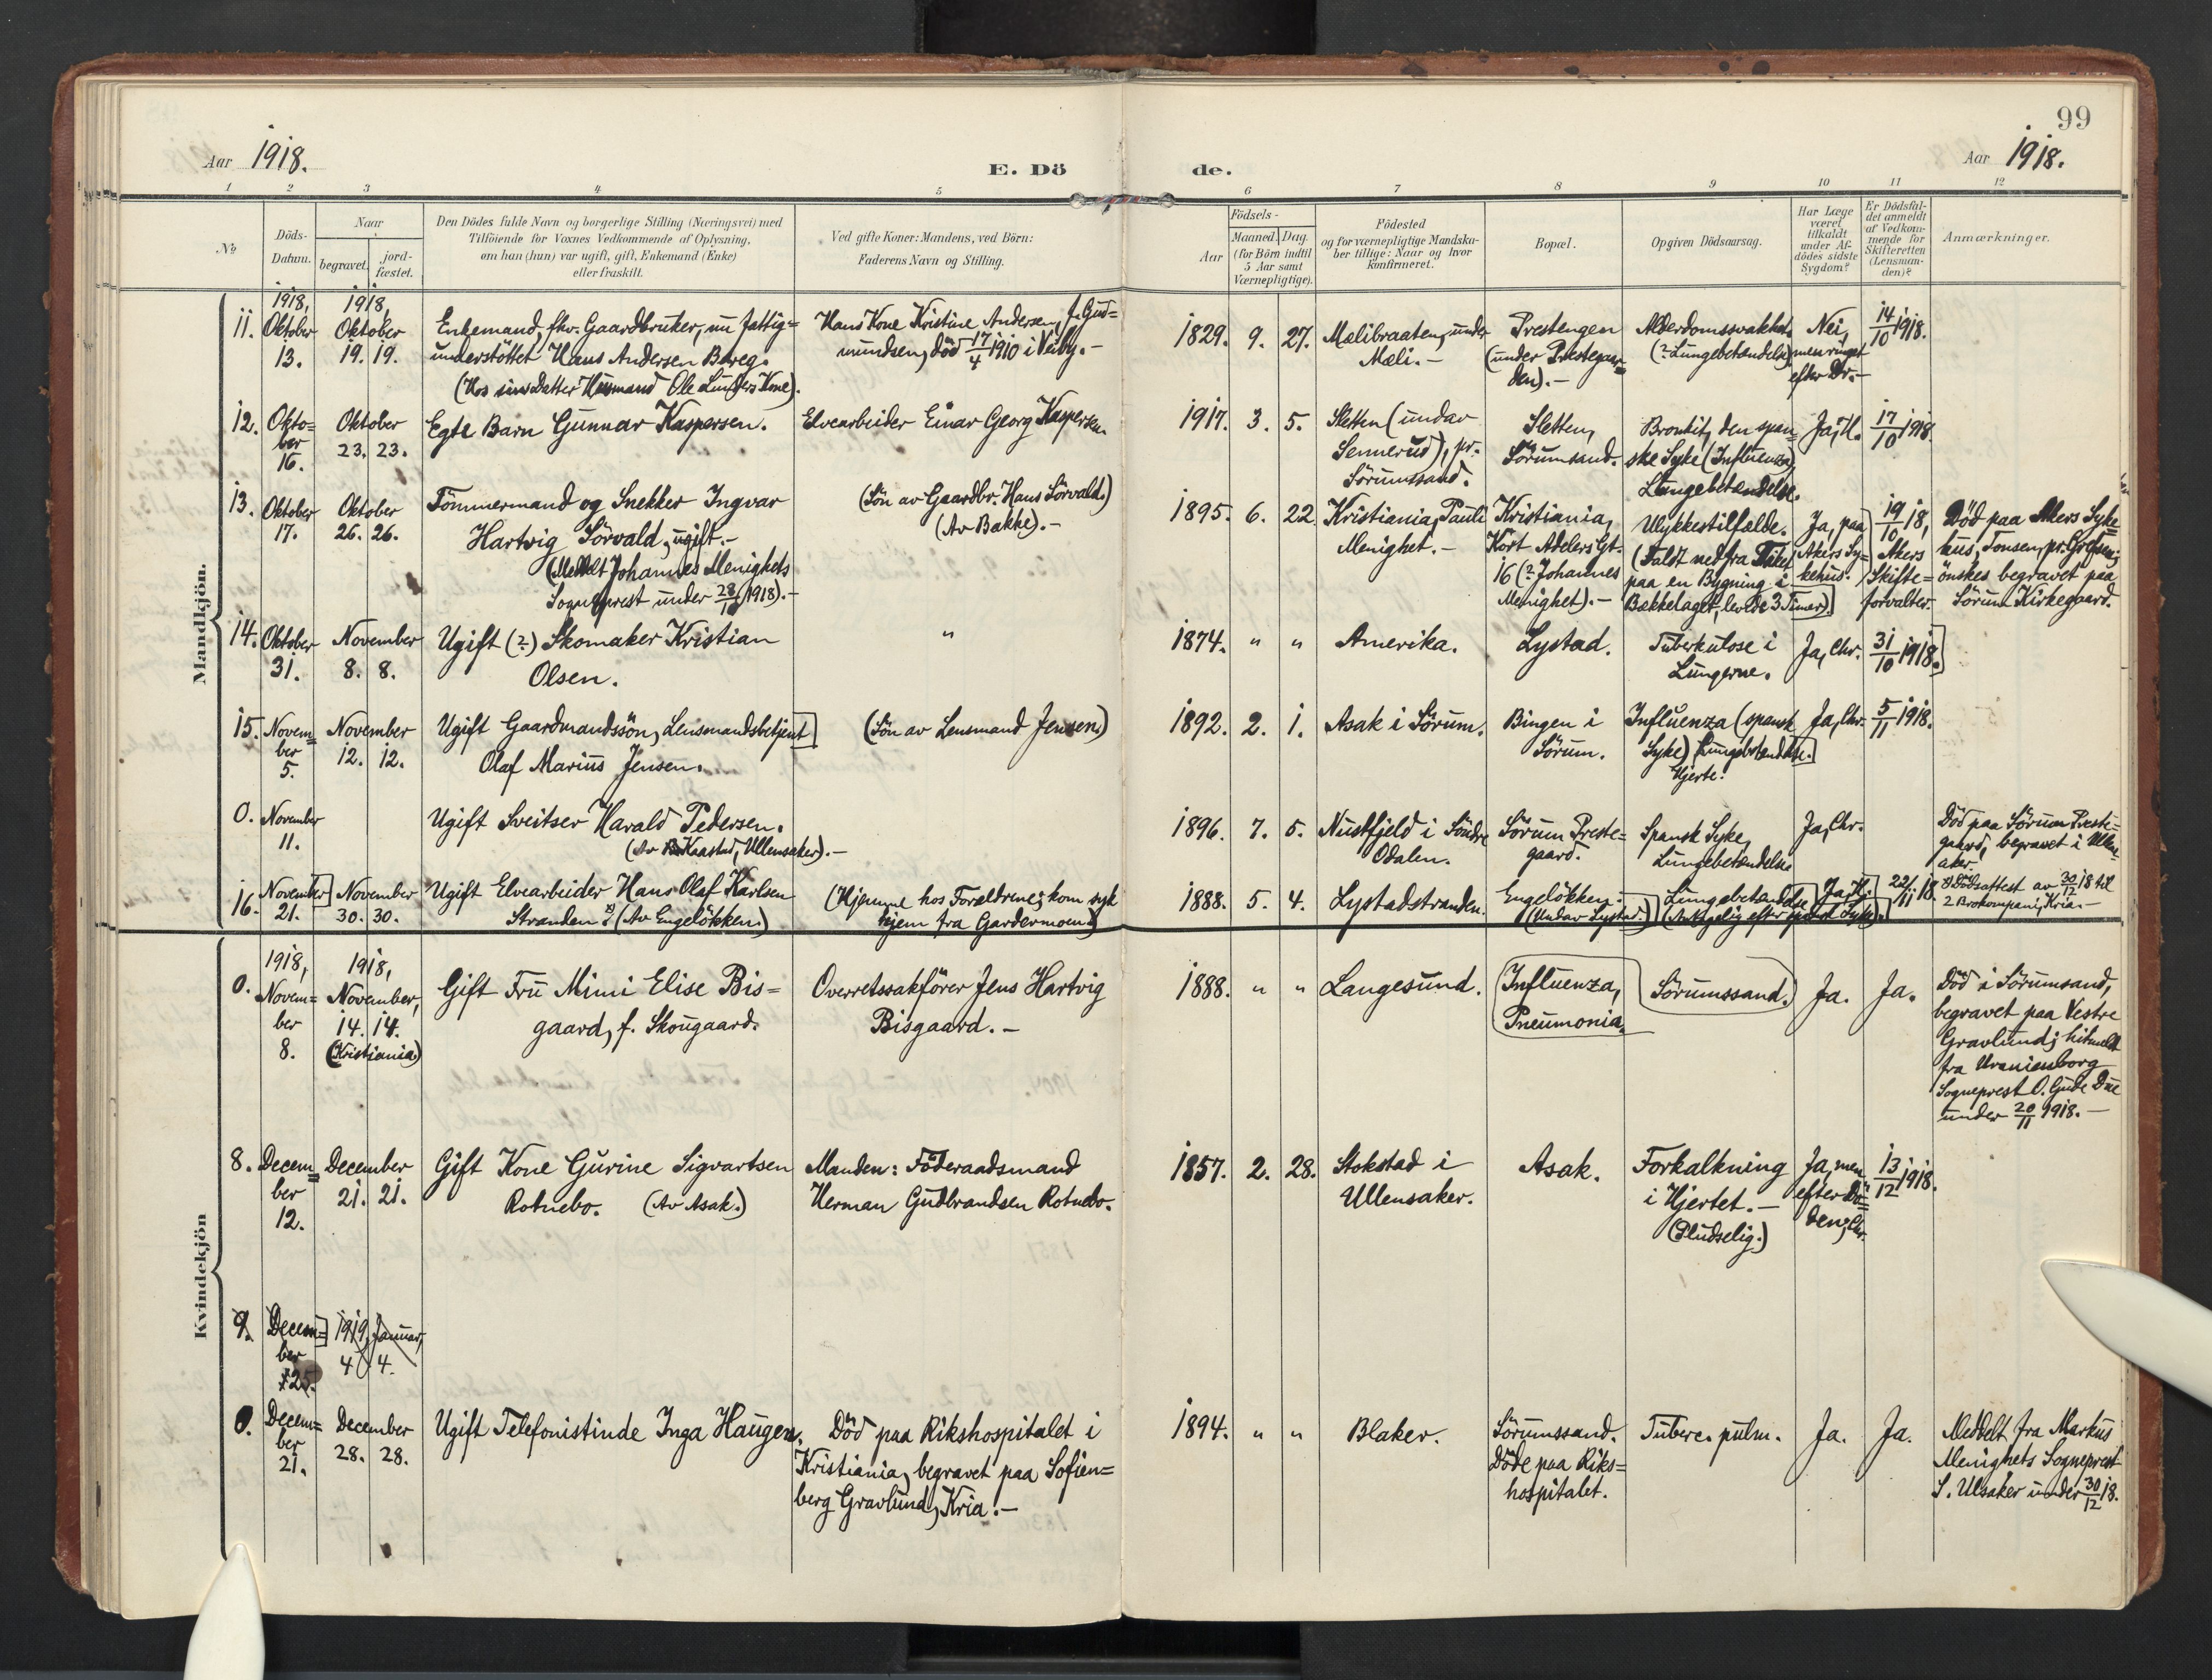 99
Aar 1918.
E. Dö
de.
Aar 1918.
1 2 3 4 5 6 7 8 9 10 11 12
No
Döds-
Datum.
Naar
begravet.
jord-
fæstet.
Den Dödes fulde Navn og borgerlige Stilling (Næringsvei) med
Tilföiende for Voxnes Vedkommende af Oplysning,
om han (hun) var ugift, gift, Enkemand (Enke)
eller fraskilt.
Ved gifte Koner: Mandens, ved Börn:
Faderens Navn og Stilling.
Födsels-
Aar
Maaned. Dag.
(for Börn indtil
5 Aar samt
Værnepligtige).
Födested
og for værnepligtige Mandska-
ber tillige: Naar og hvor
konfirmeret.
Bopæl.
Opgiven Dödsaarsag.
Har Læge
været
tilkaldt
under Af-
dödes sidste
Sygdom?
Er Dödsfal-
det anmeldt
af Vedkom-
mende for
Skifteretten
(Lensman-
den)?
Anmærkninger.
Mandkjön.
11.
1918,
Oktober
13.
1918,
Oktober
19. 19.
Enkemand, fhv. Gaardbruker, nu fattig=
understöttet Hans Andersen Bareg.
(Hos sin Datter Husmand Ole Lunders Kone).
Hans Kone Kristine Andersen, f. Gud=
mundsen, död 17/4 1910 i Veiby.-
1829. 9. 27.
Mælibraaten, under
Mæli.-
Prestengen
(under Prestegaar=
den).-
Alderdomssvakhet
(? Lungebetændelse)
Nei,
men ringet
efter Dr.-
14/10 1918.
12.
Okto=
ber
16.
Oktober
23. 23.
Egte Barn Gunnar Kaspersen.
Elvearbeider Einar Georg Kaspersen.
1917. 3. 5.
Sletten (undav
Sennerud), pr.
Sörumssand.
Sletten,
Sörumsand.
Bronkit, den span=
ske Syke (Influenza)
Lungebetændelse.
Ja, H.
17/10 1918.
13.
Oktober
17.
Oktober
26. 26.
Tömmermand og Snekker Ingvar
Hartvig Sörvald, ugift.-
(Meddelt Johannes Menighets
Sogneprest under 28/10 1918).-
(Sön av Gaardbr. Hans Sörvald.)
(Av Bakke).-
1895. 6. 22.
Kristiania, Pauli
Menighet.-
Kristiania,
Kort Adelers Gt.
16 (? Johannes
Menighet).-
Ulykkestilfælde.
(Faldt ned fra Taket
paa en Bygning i
Bækkelaget, levde 3 Timer).
Ja, paa
Akers Sy=
kehus.
19/10 18,
Akers
Skifte=
forvalter.
Död paa Akers Syke=
hus, Tonsen, pr. Grefsen;
önskes begravet paa
Sörum Kirkegaard.
14.
Oktober
31.
November
8. 8.
Ugift (?) Skomaker Kristian
Olsen.
"
1874. " "
Amerika.
Lystad.
Tuberkulose i
Lungerne.
Ja, Chr.
31/10 1918.
15.
Novem=
ber
5.
November
12. 12.
Ugift Gaardmandssön, Lensmandsbetjent
Olaf Marius Jensen.
(Sön av Lensmand Jensen.)
1892. 2. 1.
Asak i Sörum.
Bingen i
Sörum.
Influenza (spansk
Syke) Lungebetændelse.
Hjerte.
Ja, Chr.
5/11 1918.
0.
November
11.
Ugift Sveitser Harald Pedersen.
(Av Kaastad, Ullensaker).-
1896. 7. 5.
Nustfjeld i Söndre
Odalen.
Sörum Preste=
gaard.
Spansk Syke,
Lungebetændelse
Ja, Chr.
Död paa Sörum Preste=
gaard, begravet i Ullen=
aker.
16.
November
21.
November
30. 30.
Ugift Elvearbeider Hans Olaf Karlsen
Stranden. x) (Av Engelökken.)
(Hjemme hos Forældrene; kom syk
hjem fra Gardermoen.)
1888. 5. 4.
Lystadstranden.
Engelökken.
(Undav Lystad.)
Lungebetændelse
(Antagelig efter spansk Syke).
Ja, H.
22/11 18.
x) Dödsattest av 30/12 18 til
2 Brokompani, Kria.-
Kvindekjön
0.
1918,
Novem=
ber
8.
1918,
November,
14. 14.
(Kristiania)
Gift Fru Mimi Elise Bis=
gaard, f. Skougaard.
Overretssakförer Jens Hartvig
Bisgaard.-
1888. " "
Langesund.
Influenza,
Pneumonia.
Sörumssand.
Ja.
Ja.
Död i Sörumsand,
begravet paa Vestre
Gravlund; hitmeldt
fra Uranienborg
Sogneprest O. Gude Due
under 20/11 1918.-
8.
Decem=
ber
12.
December
21. 21.
Gift Kone Gurine Sigvartsen
Rotnebo. (Av Asak.)
Manden: Föderaadsmand
Herman Gudbrandsen Rotnebo.
1857. 2. 28.
Stokstad i
Ullensaker.
Asak.
Forkalkning
i Hjertet.-
(Pludselig.)
Ja, men
efter Dö=
den, Chr.
13/12 1918.
9.
Decem=
ber
25.
1919, Januar,
4. 4.
0.
Decem=
ber
21.
December
28. 28.
Ugift Telefonistinde Inga Haugen.
Död paa Rikshospitalet i
Kristiania, begravet paa Sofien=
berg Gravlund, Kria.-
1894. " "
Blaker.
Sörumssand.
Döde paa Riks=
hospitalet.
Tuberc. pulm.
Ja.
Ja.
Meddelt fra Markus
Menighets Sogneprest
S. Ulsaker under 30/12 18.